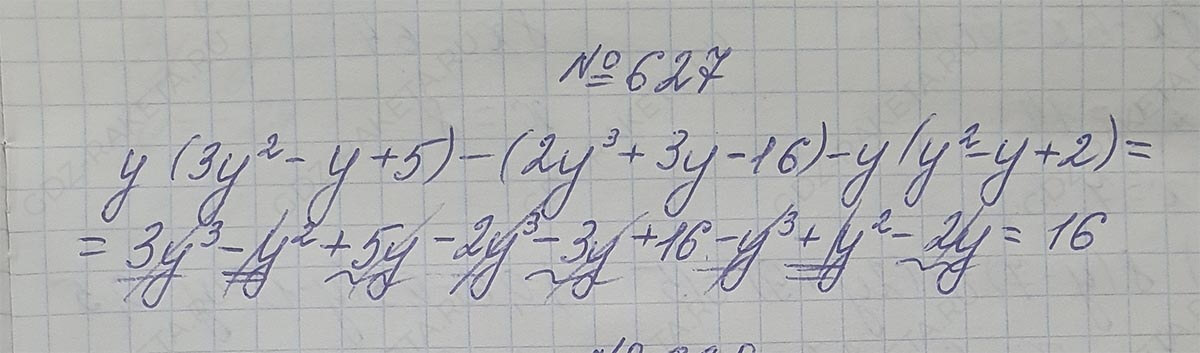 № 627
y (3y² - y + 5) - (2y³ + 3y - 16) - y (y² - y + 2) =
= 3y³ - y² + 5y - 2y³ - 3y + 16 - y³ + y² - 2y = 16